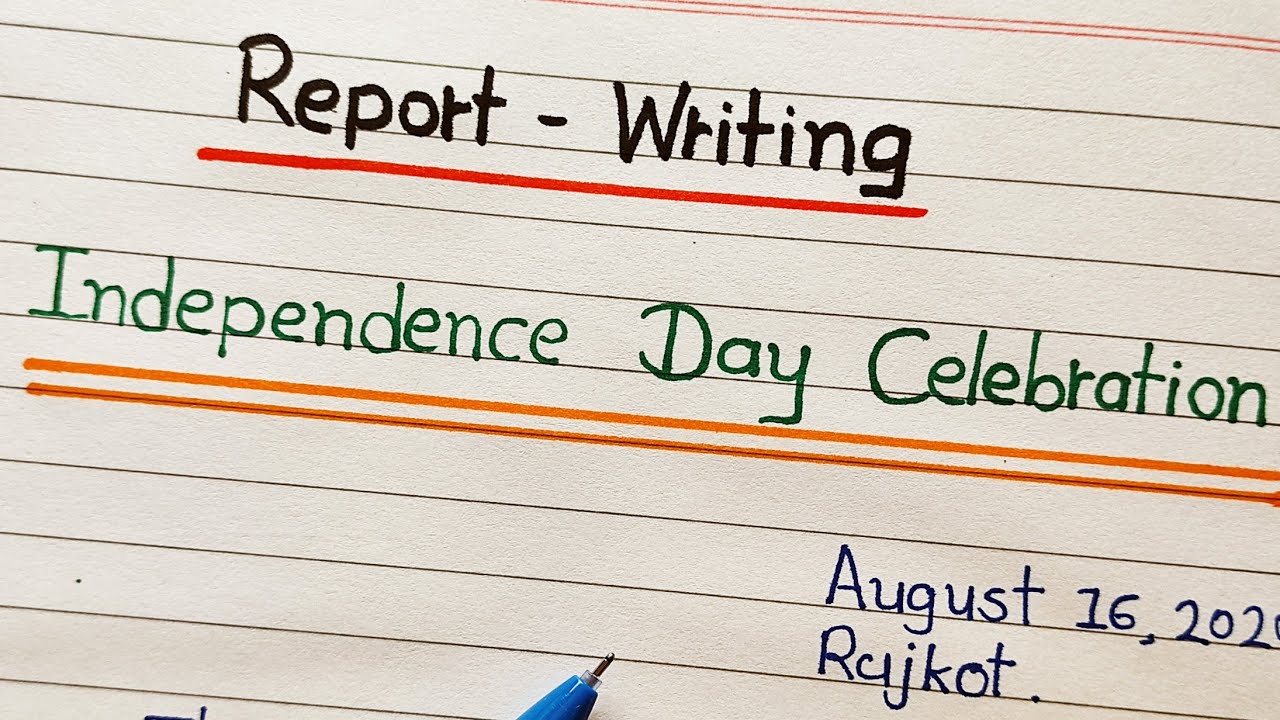 Report - Writing
Independence Day Celebration
August 16, 202
Rajkot.